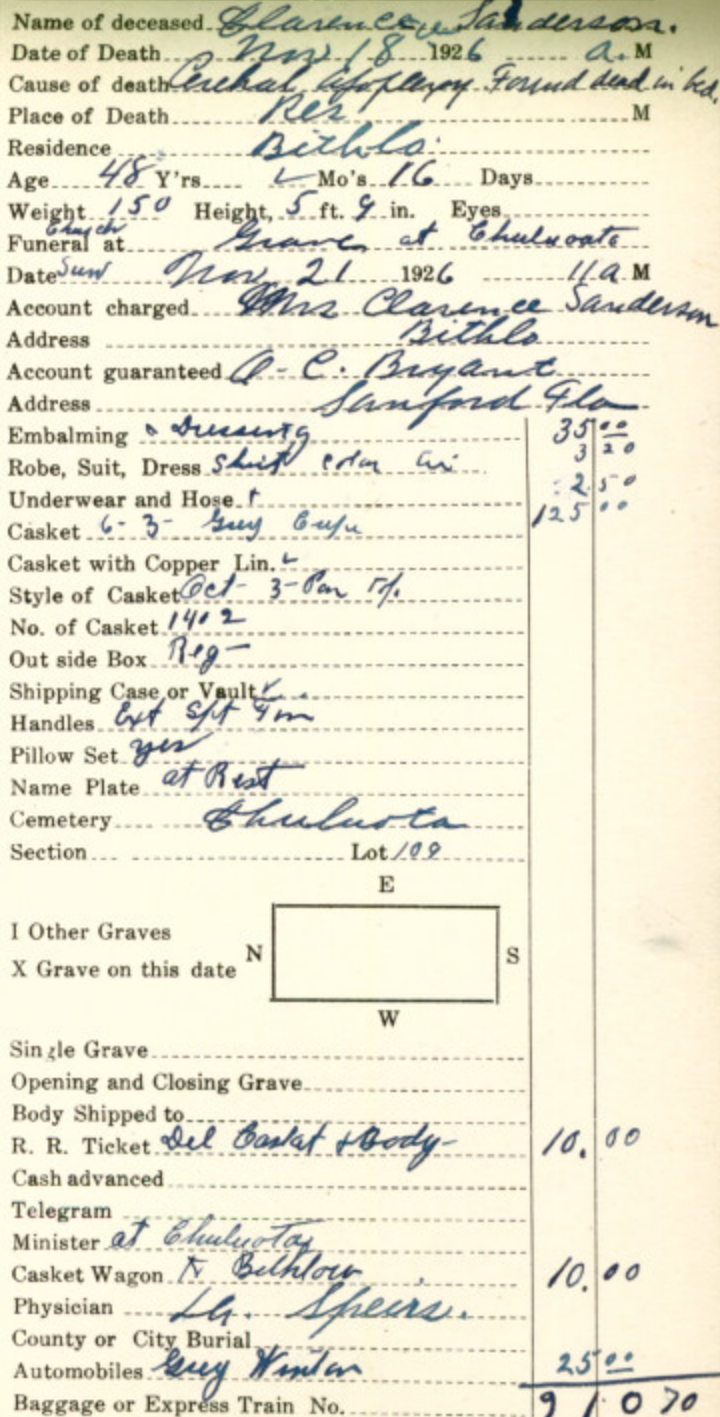 Name of deceased Clarence Sanderson.
Date of Death Nov 18 1926 a. M
Cause of death Cerebral apoplexy Found dead in bed.
Place of Death Res M
Residence Bithlo
Age 48 Y'rs ✓ Mo's 16 Days
Weight 150 Height, 5 ft. 9 in. Eyes
Church
Funeral at Grave at Chuluota
Date Sun Nov 21 1926 11 a M
Account charged Mrs Clarence Sanderson
Address Bithlo
Account guaranteed A - C. Bryant
Address Sanford Fla
Embalming & Dressing 35 00
Robe, Suit, Dress Shirt Colar 3 20
Underwear and Hose 2 50
Casket 6 - 3 - Grey 125 00
Casket with Copper Lin. ✓
Style of Casket Oct - 3 - Pan
No. of Casket 1402
Out side Box Reg -
Shipping Case or Vault ✓
Handles Ext
Pillow Set yes
Name Plate at Rest
Cemetery Chuluota
Section Lot 109
E
I Other Graves
N S
X Grave on this date
W
Single Grave
Opening and Closing Grave
Body Shipped to
R. R. Ticket Del Casket & Body - 10. 00
Cash advanced
Telegram
Minister at Chuluota
Casket Wagon Bithlow 10. 00
Physician Spears.
County or City Burial
Automobiles Grey Winton 25 00
Baggage or Express Train No. 70